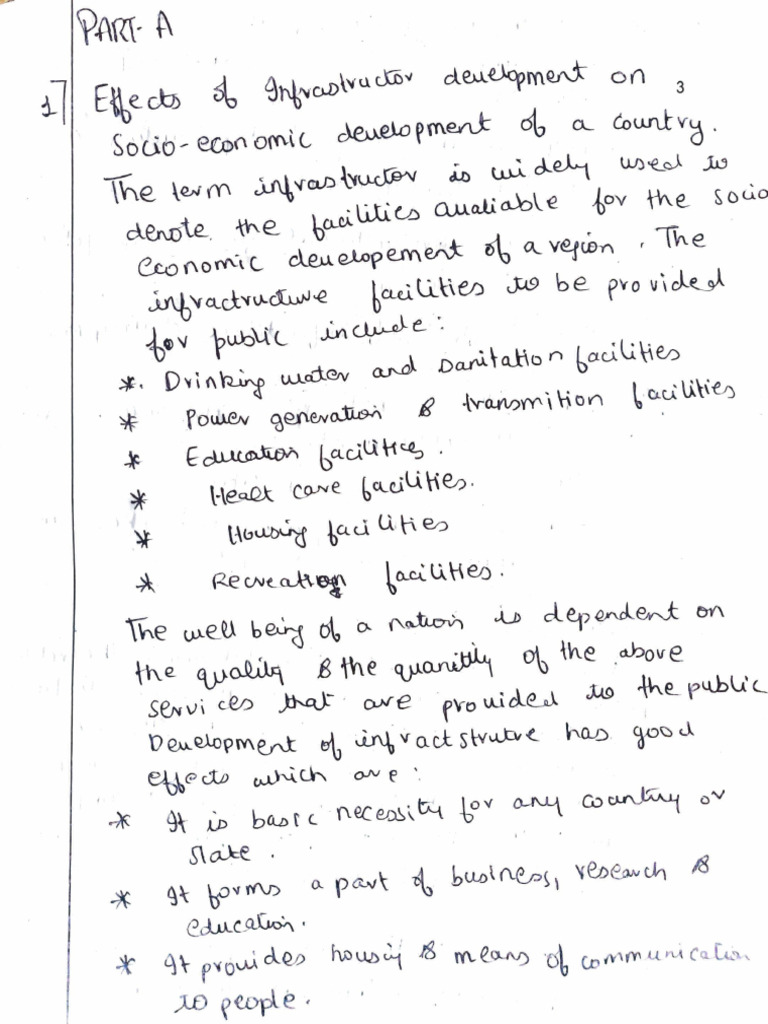 PART-A
1] Effects of Infrastructor development on 3
Socio-economic development of a country.
The term infrastructor is widely used to
denote the facilities avaliable for the socio
economic developement of a region. The
infractructure facilities to be provided
for public include:
*. Drinking water and sanitation facilities
* Power generation & transmition facilities
* Education facilities.
* Healt care facilities.
* Housing facilities
* Recreation facilities.
The well being of a nation is dependent on
the quality & the quanitity of the above
services that are provided to the public
Development of infractstrutre has good
effects which are:
* It is basic necessity for any country or
state.
* It forms a part of business, research &
education.
* It provides housing & means of communication
to people.